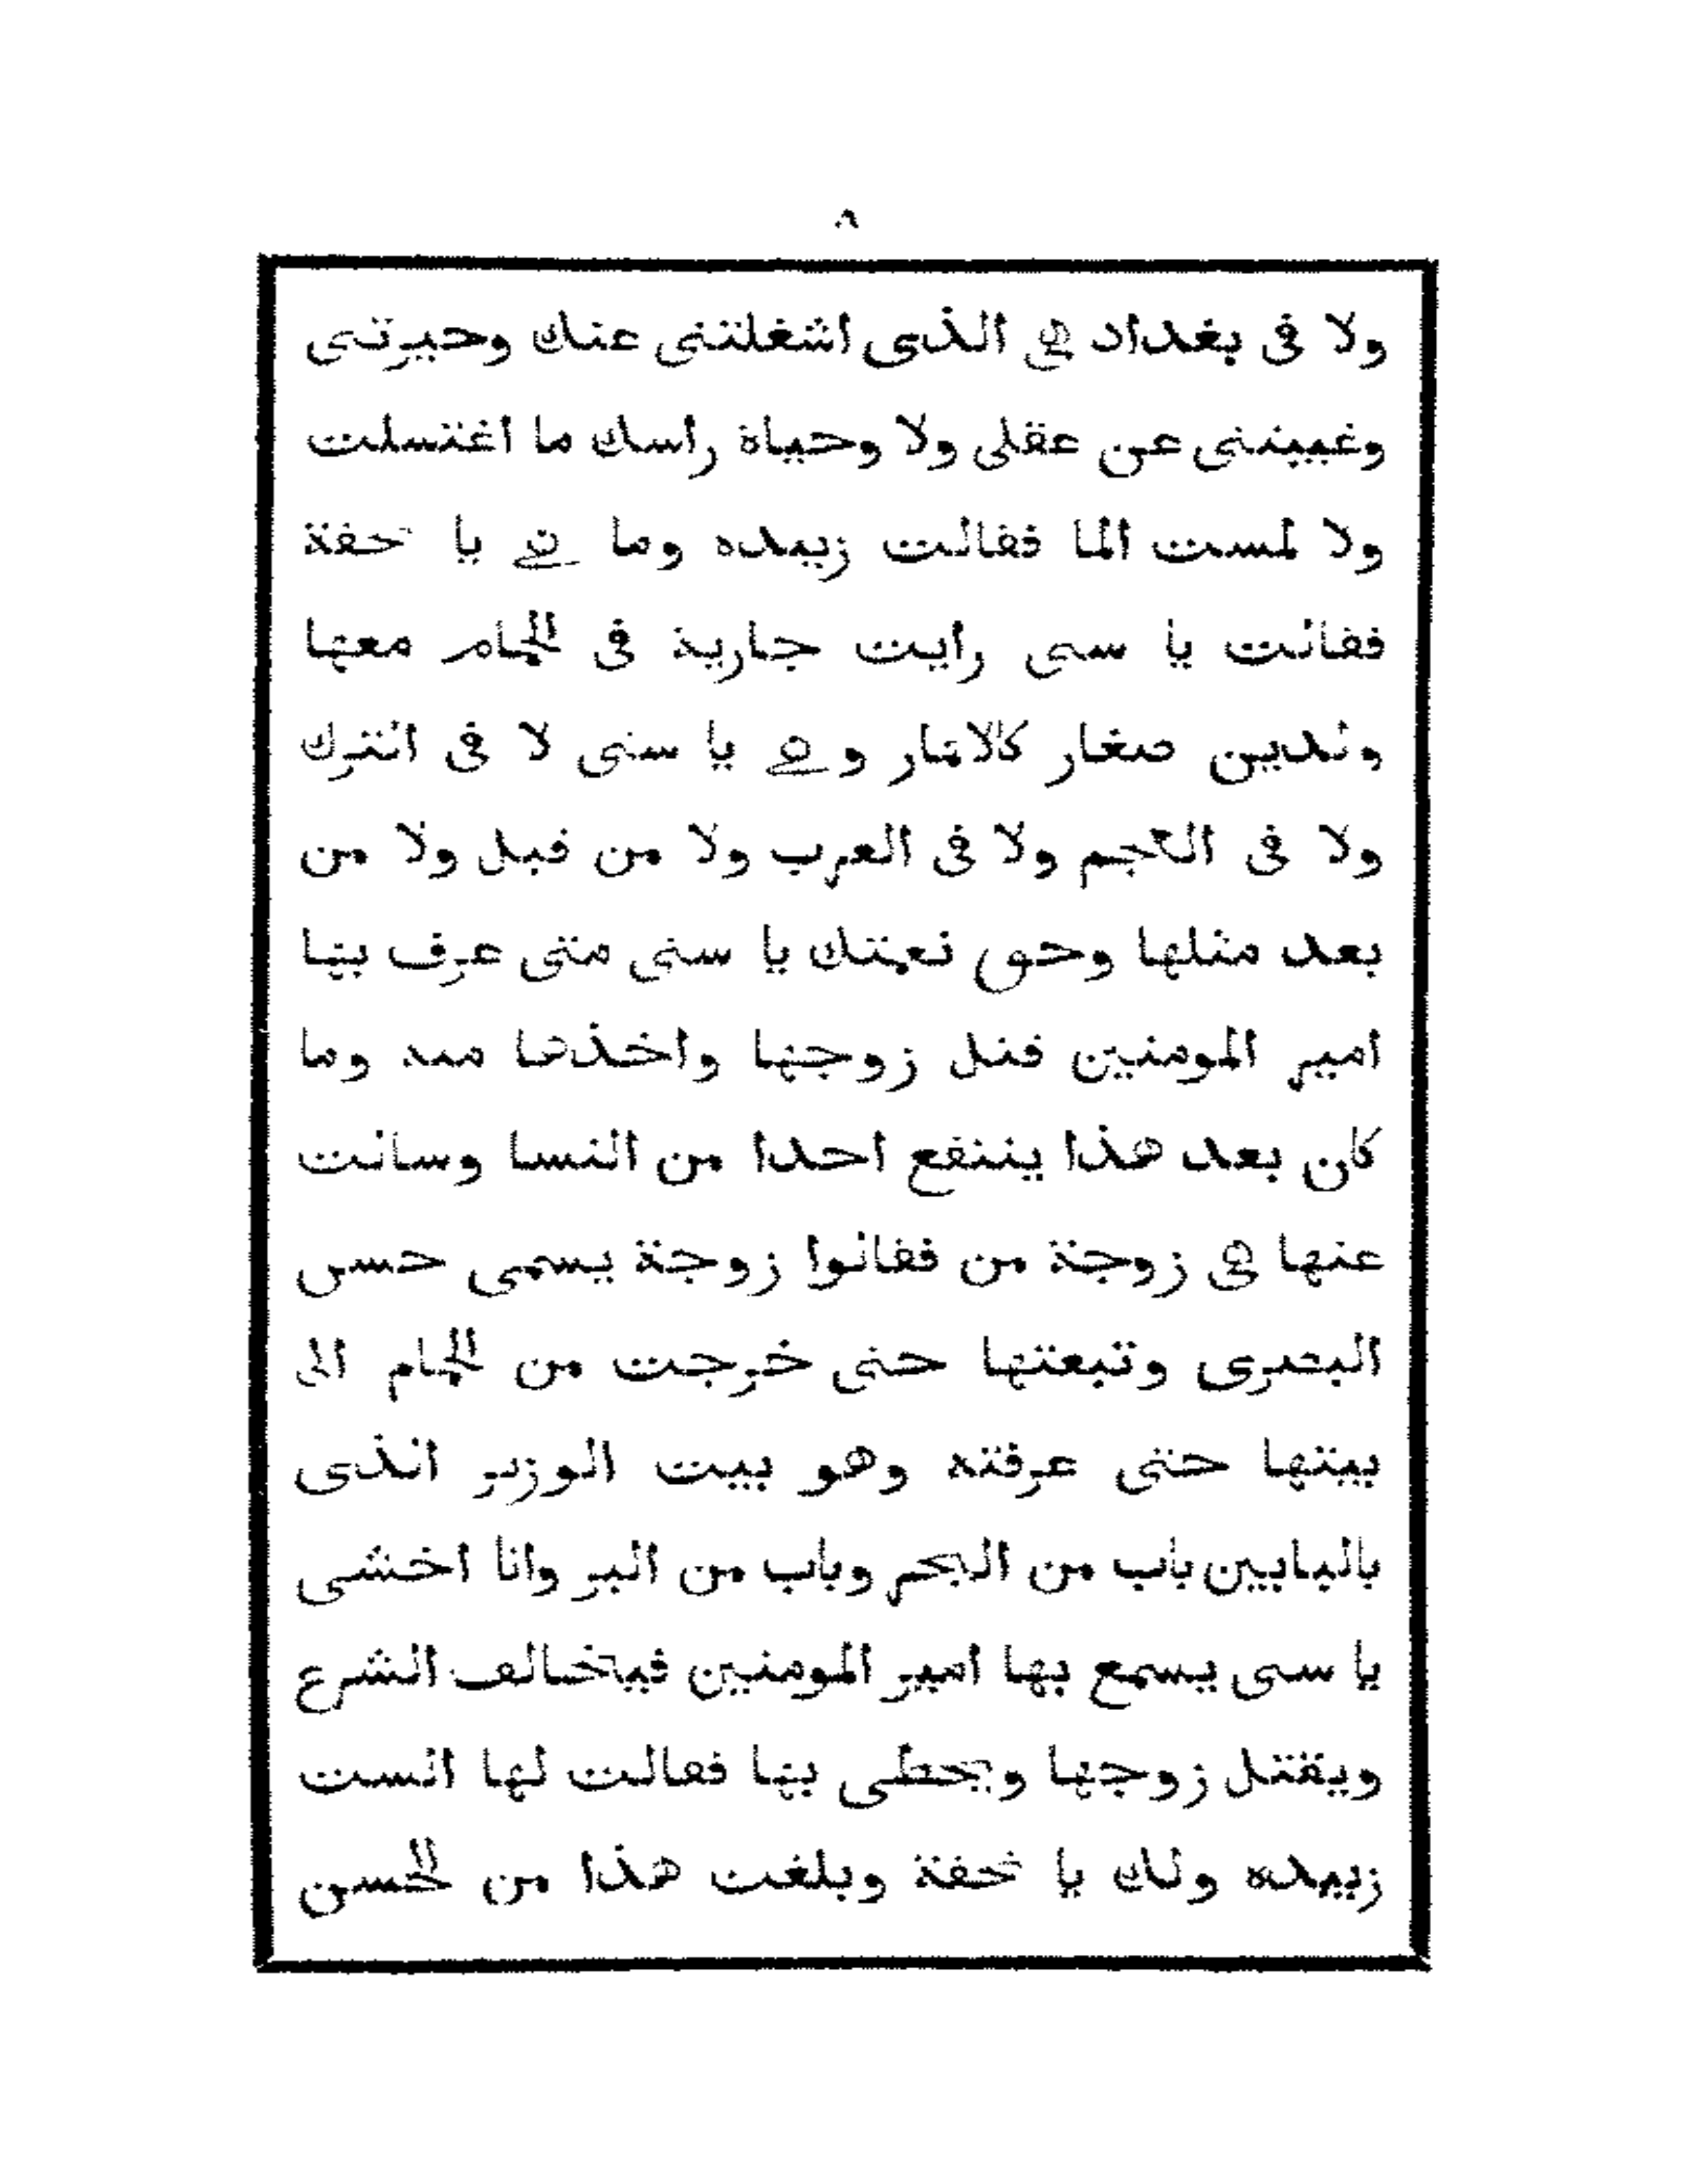 ٨٠
ولا فى بغداد هى الذى اشغلتنى عنك وحيرتنى
وغيبتنى عن عقلى ولا وحياة راسك ما اغتسلت
ولا لمست الما فقالت زبيده وما هى يا تحفة
فقالت يا ستى رايت جارية فى الحمام معها
ولدين صغار كالاقمار وهى يا ستى لا فى الترك
ولا فى العجم ولا فى العرب ولا من قبل ولا من
بعد مثلها وحق نعمتك يا ستى متى عرف بها
امير المومنين قتل زوجها واخذها منه وما
كان بعد هذا ينتفع احدا من النسا وسالت
عنها هى زوجة من فقالوا زوجة يسمى حسن
البصرى وتبعتها حتى خرجت من الحمام الى
بيتها حتى عرفته وهو بيت الوزير الذى
بالبابين باب من البحر وباب من البر وانا اخشى
يا ستى يسمع بها امير المومنين فيخالف الشرع
ويقتل زوجها ويحظى بها فقالت لها الست
زبيده ولك يا تحفة وبلغت هذا من الحسن